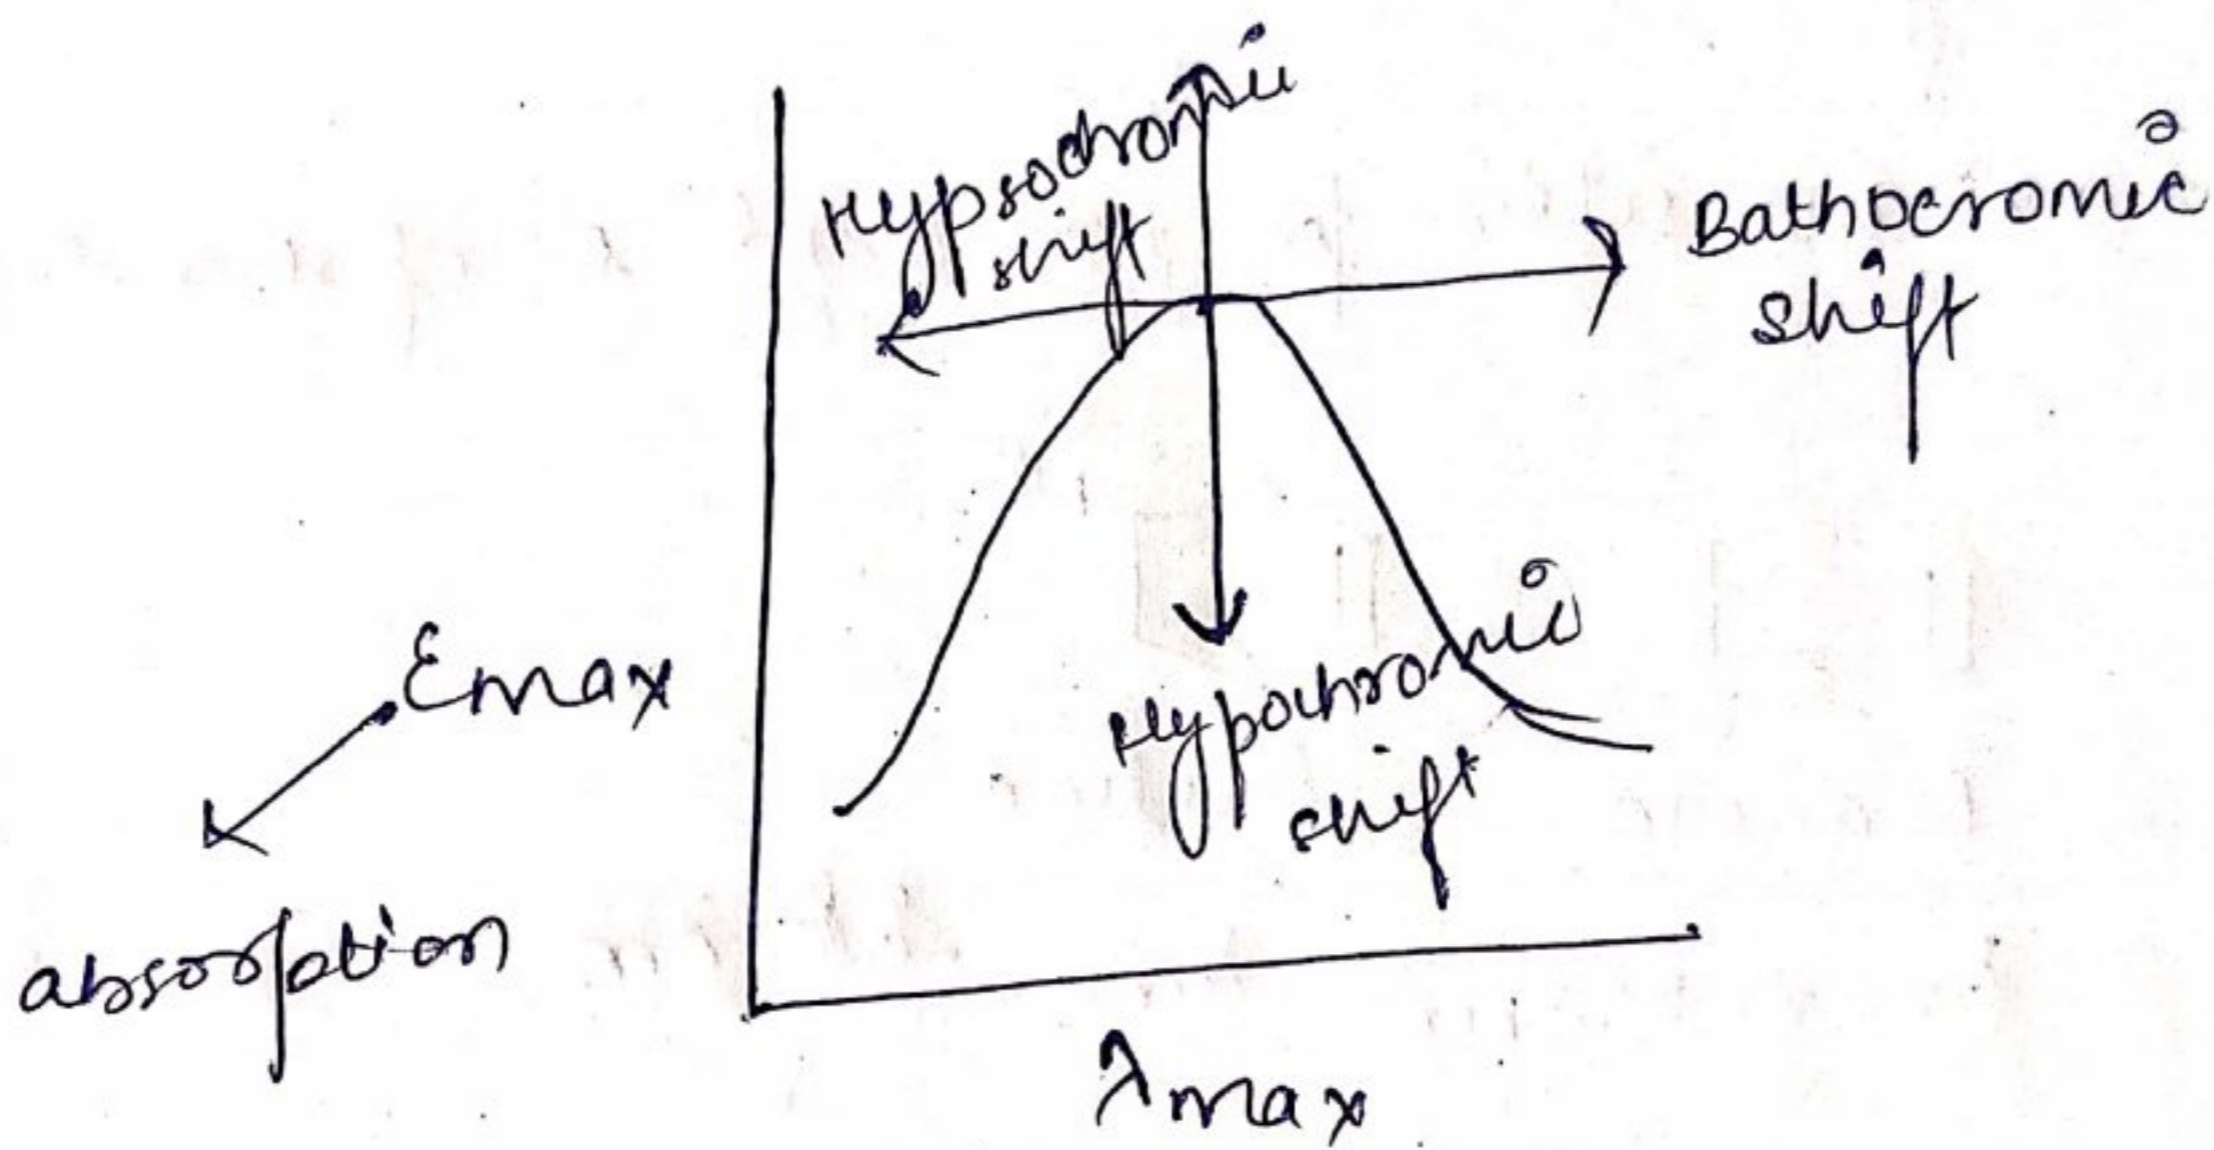 Hypsochromic
shift
Bathocromic
shift
Emax
Hypochromic
shift
absorption
λmax